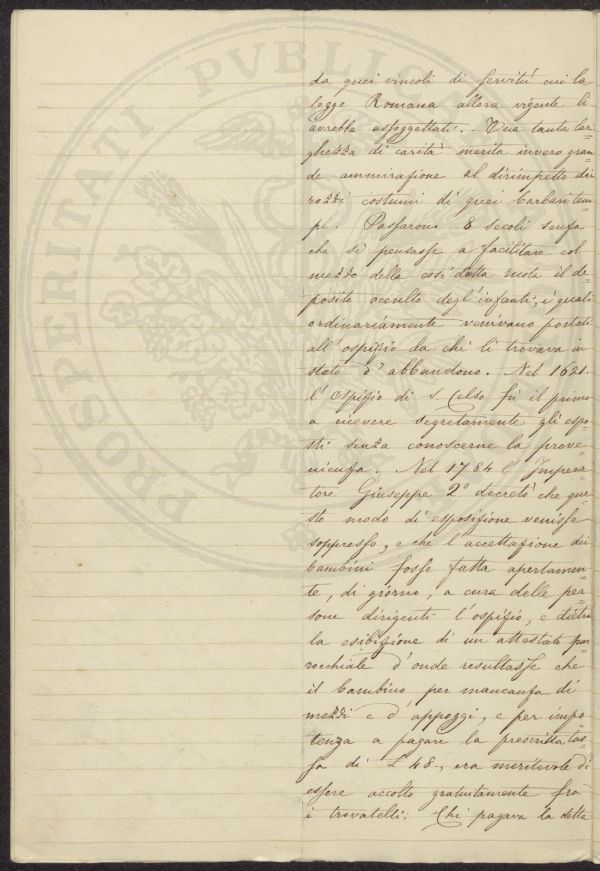 da quei vincoli di servitù cui la
legge Romana allora vigente li
avrebbe assoggettati. Una tanta lar=
ghezza di carità merita invero gran=
de ammirazione al dirimpetto dei
rozzi costumi di quei barbari tem=
pi. Passarono 8 secoli senza
che si pensasse a facilitare col
mezzo della così detta ruota il de=
posito occulto degl'infanti, i quali
ordinariamente venivano portati
all'ospizio da chi li trovava in
stato d'abbandono. Nel 1621.
l'Ospizio di S. Celso fù il primo
a ricevere segretamente gli espo=
sti senza conoscerne la prove=
nienza. Nel 1784 l'Impera=
tore Giuseppe 2º decretò che que=
sto modo di esposizione venisse
soppresso, e che l'accettazione dei
bambini fosse fatta apertamen=
te, di giorno, a cura delle per=
sone dirigenti l'ospizio, e dietro
la esibizione di un attestato par=
rocchiale d'onde resultasse che
il bambino per mancanza di
mezzi e d'appoggi, e per impo=
tenza a pagare la prescritta tas=
sa di £ 48., era meritevole di
essere accolto gratuitamente fra
i trovatelli. Chi pagava la detta
PROSPERITATI PVBLIC